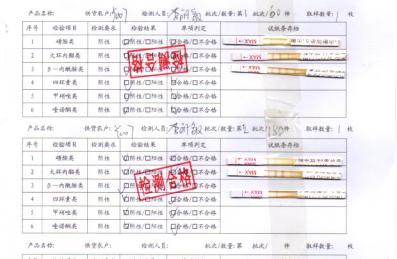 产品名称: 供货农户: 4007 检测人员: 批次/数量: 第1批次/ 件 取样数量: 1 枚
序号 检验项目 检验要求 检验结果 单项判定 试纸条存档
1 磺胺类 阴性 ☑阴性/□阳性 ☑合格/□不合格
2 大环内酯类 阴性 ☑阴性/□阳性 ☑合格/□不合格
3 β-内酰胺类 阴性 ☑阴性/□阳性 ☑合格/□不合格
4 四环素类 阴性 ☑阴性/□阳性 ☑合格/□不合格
5 甲硝唑类 阴性 ☑阴性/□阳性 ☑合格/□不合格
6 喹诺酮类 阴性 ☑阴性/□阳性 ☑合格/□不合格
检测合格
MAX
MAX
MAX
产品名称: 供货农户: 4007 检测人员: 批次/数量: 第2批次/ 件 取样数量: 1 枚
序号 检验项目 检验要求 检验结果 单项判定 试纸条存档
1 磺胺类 阴性 ☑阴性/□阳性 ☑合格/□不合格
2 大环内酯类 阴性 ☑阴性/□阳性 ☑合格/□不合格
3 β-内酰胺类 阴性 ☑阴性/□阳性 ☑合格/□不合格
4 四环素类 阴性 ☑阴性/□阳性 ☑合格/□不合格
5 甲硝唑类 阴性 ☑阴性/□阳性 ☑合格/□不合格
6 喹诺酮类 阴性 ☑阴性/□阳性 ☑合格/□不合格
检测合格
MAX
MAX
MAX
产品名称: 供货农户: 检测人员: 批次/数量: 第 批次/ 件 取样数量: 枚